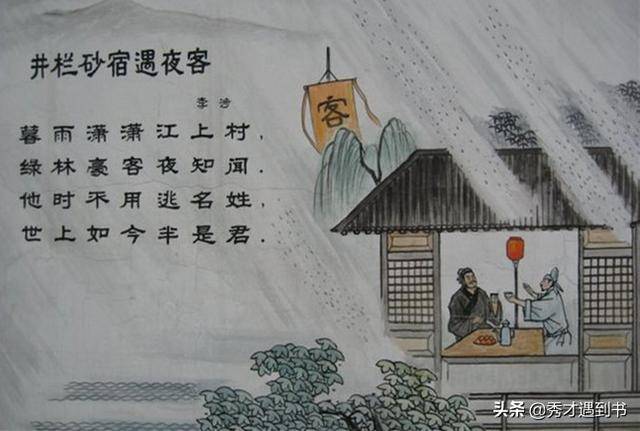 井栏砂宿遇夜客
李涉
暮雨潇潇江上村，
绿林豪客夜知闻．
他时不用逃名姓，
世上如今半是君．
客
头条 @秀才遇到书